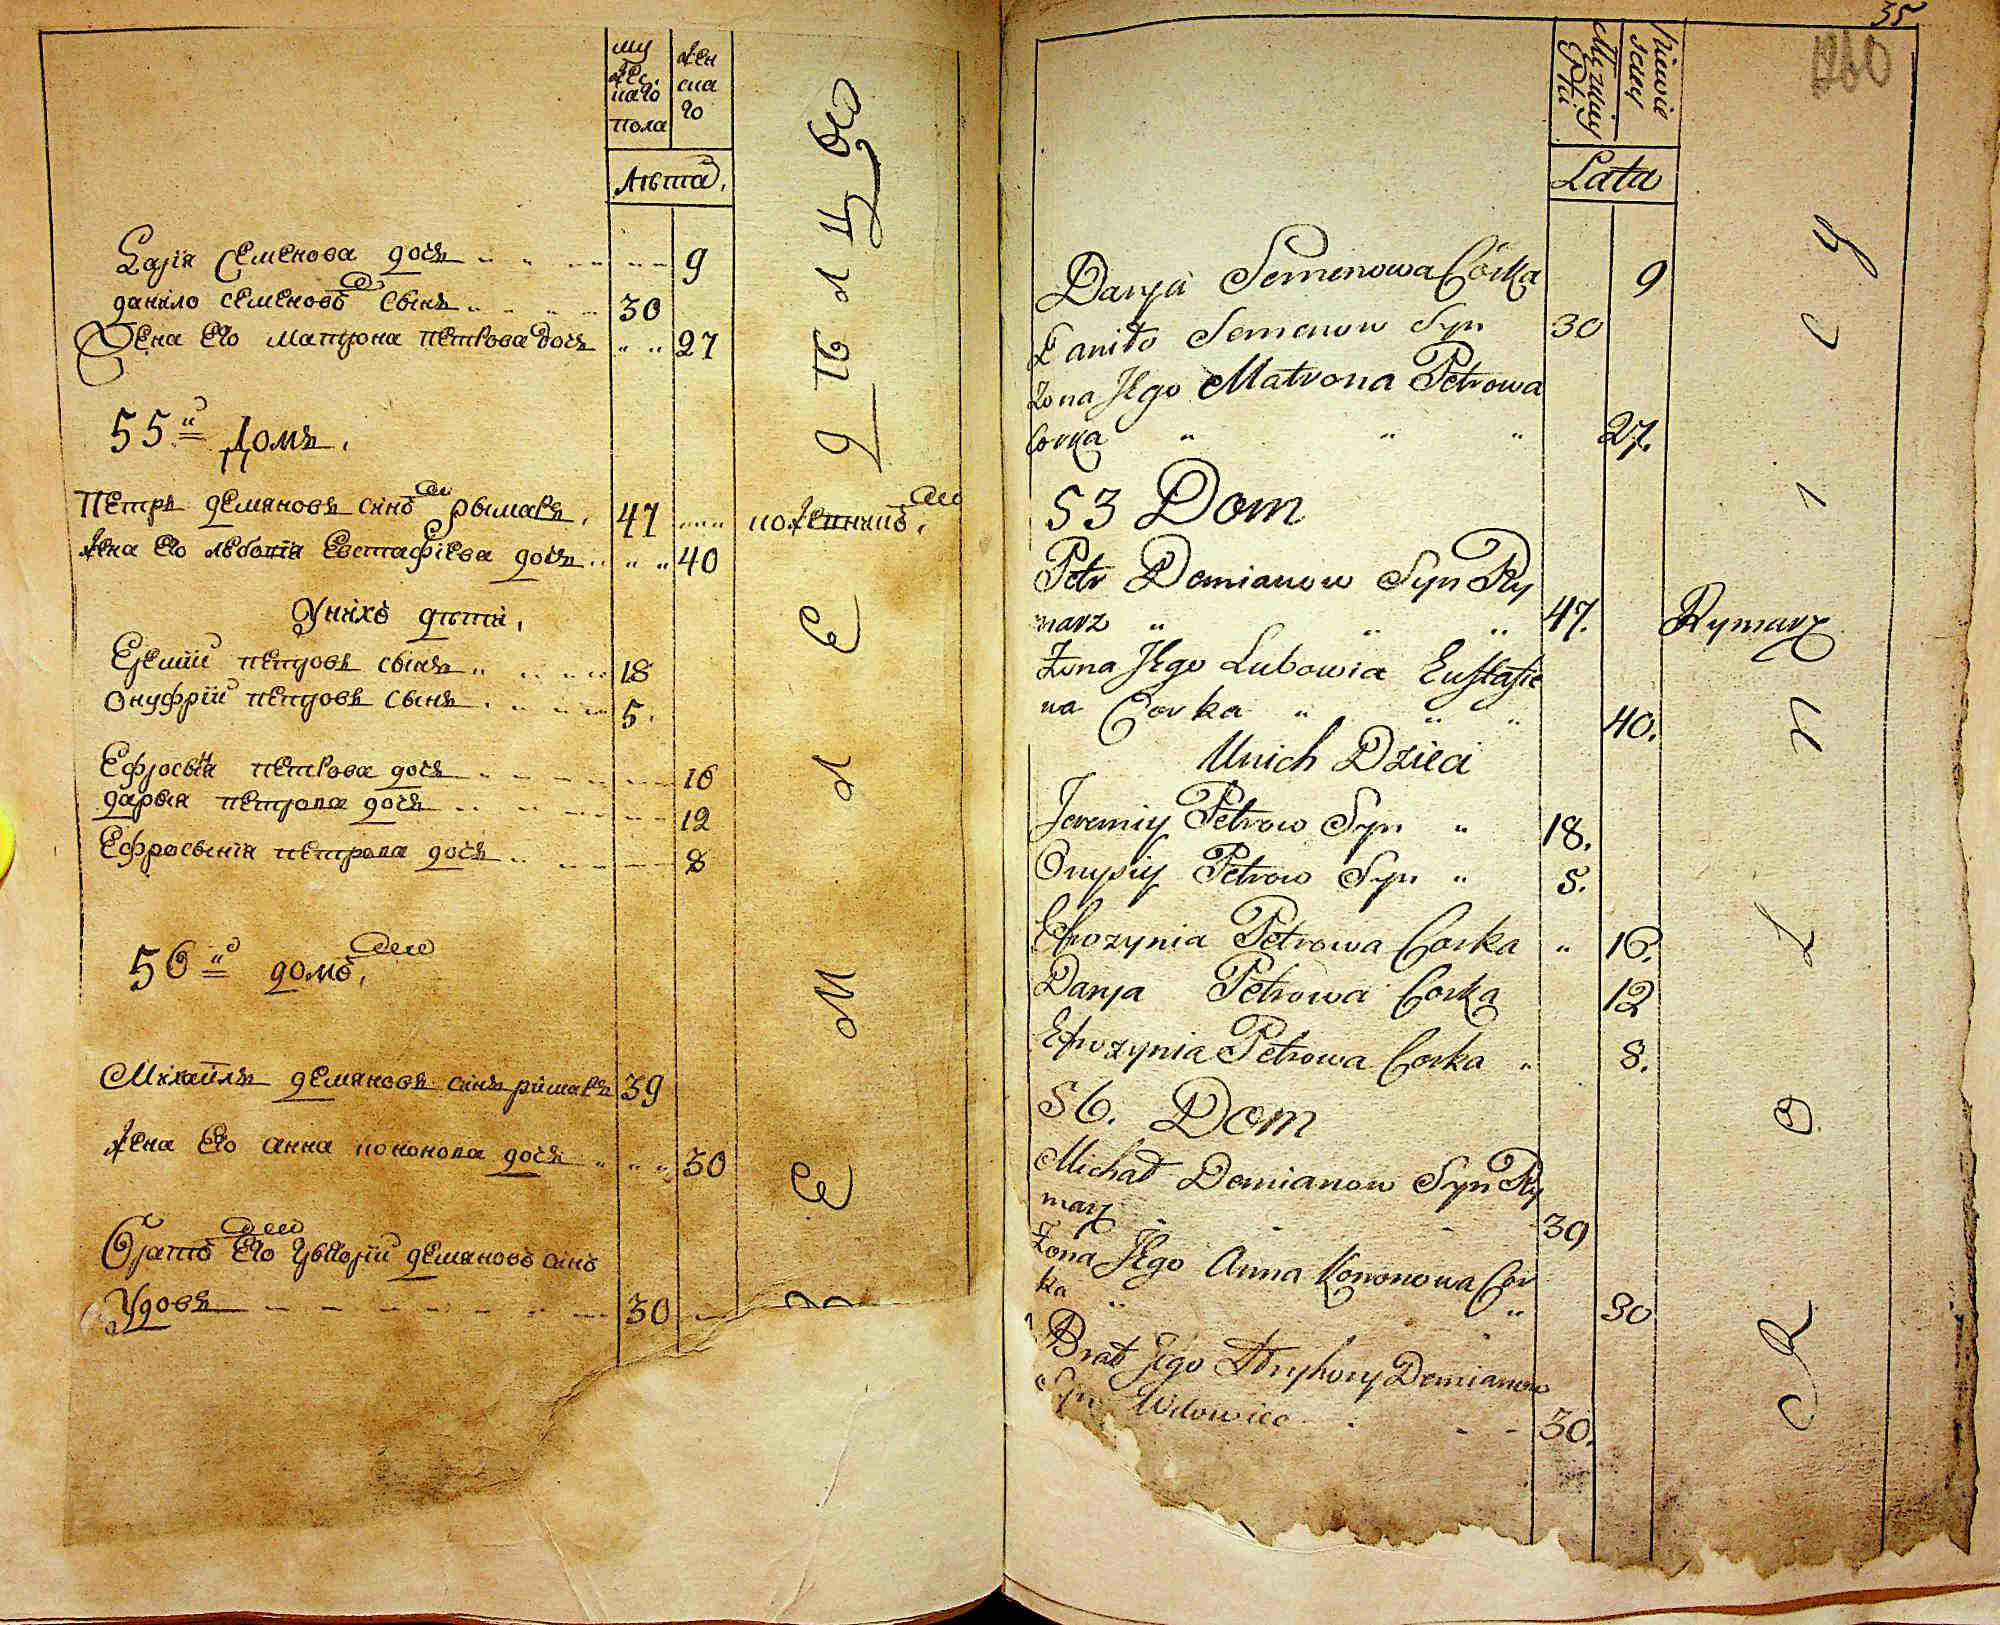 му
жес
каго
пола
жен
ска
го
лѣта,
Дарія Семенова дочъ 9
данило семеновъ сынъ 30
Жена его матрона петрова дочъ 27
55й домъ,
Петръ демяновъ синъ рымаръ, 47
Жена его любовія Евстафіева дочъ 40
Унихъ дѣти,
Еремій петровъ сынъ 18
Онуфрій петровъ сынъ 5.
Ефросинія петрова дочъ 16
дарыя петрова дочъ 12
Ефросынія петрова дочъ 8
56й домъ,
Михайлъ демяновъ синъ римаръ 39
Жена его анна кононова дочъ 30
братъ его григорій демяновъ синъ
удовъ 30
35
Męzkiey
Płci
Lata
Darya Semenowa Córka 9
Daniło Semenow Syn 30
Żona Jego Matrona Petrowa
Corka " " " 27.
53 Dom
Petr Demianow Syn Ry
marz " " " 47. Rymarz
Żona Jego Lubowia Eustafie
wa Corka " " " 40.
Unich Dzieci
Jeremiy Petrow Syn " 18.
Onupiy Petrow Syn " 5.
Efrozynia Petrowa Corka " 16.
Darya Petrowa Corka 12
Efrozynia Petrowa Corka " 8.
56. Dom
Michał Demianow Syn Ry
marz 39
Żona Jego Anna Kononowa Cor
ka " " 30
Brat Jego Hryhory Demianow
Syn Wdowiec 30.